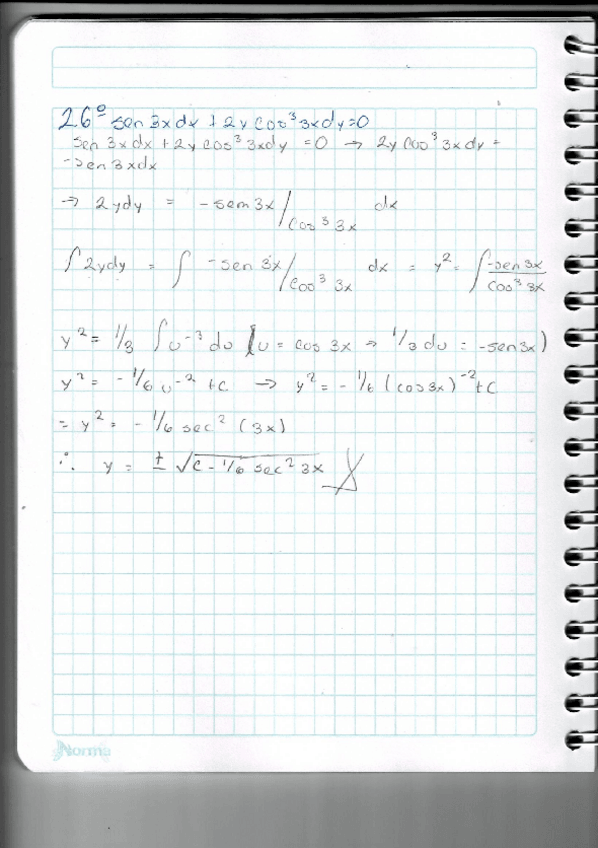 26º sen 3x dx + 2y cos³ 3x dy = 0
sen 3x dx + 2y cos³ 3x dy = 0 → 2y cos³ 3x dy =
-sen 3x dx
→ 2y dy = -sem 3x / cos³ 3x dx
∫ 2y dy = ∫ -sen 3x / cos³ 3x dx = y² = ∫ -sen 3x / cos³ 3x
y² = 1/3 ∫ u⁻³ du (u = cos 3x → 1/3 du = -sen 3x)
y² = -1/6 u⁻² + C → y² = -1/6 (cos 3x)⁻² + C
= y² = -1/6 sec² (3x)
∴ y = ± √(C - 1/6 sec² 3x)
Norma